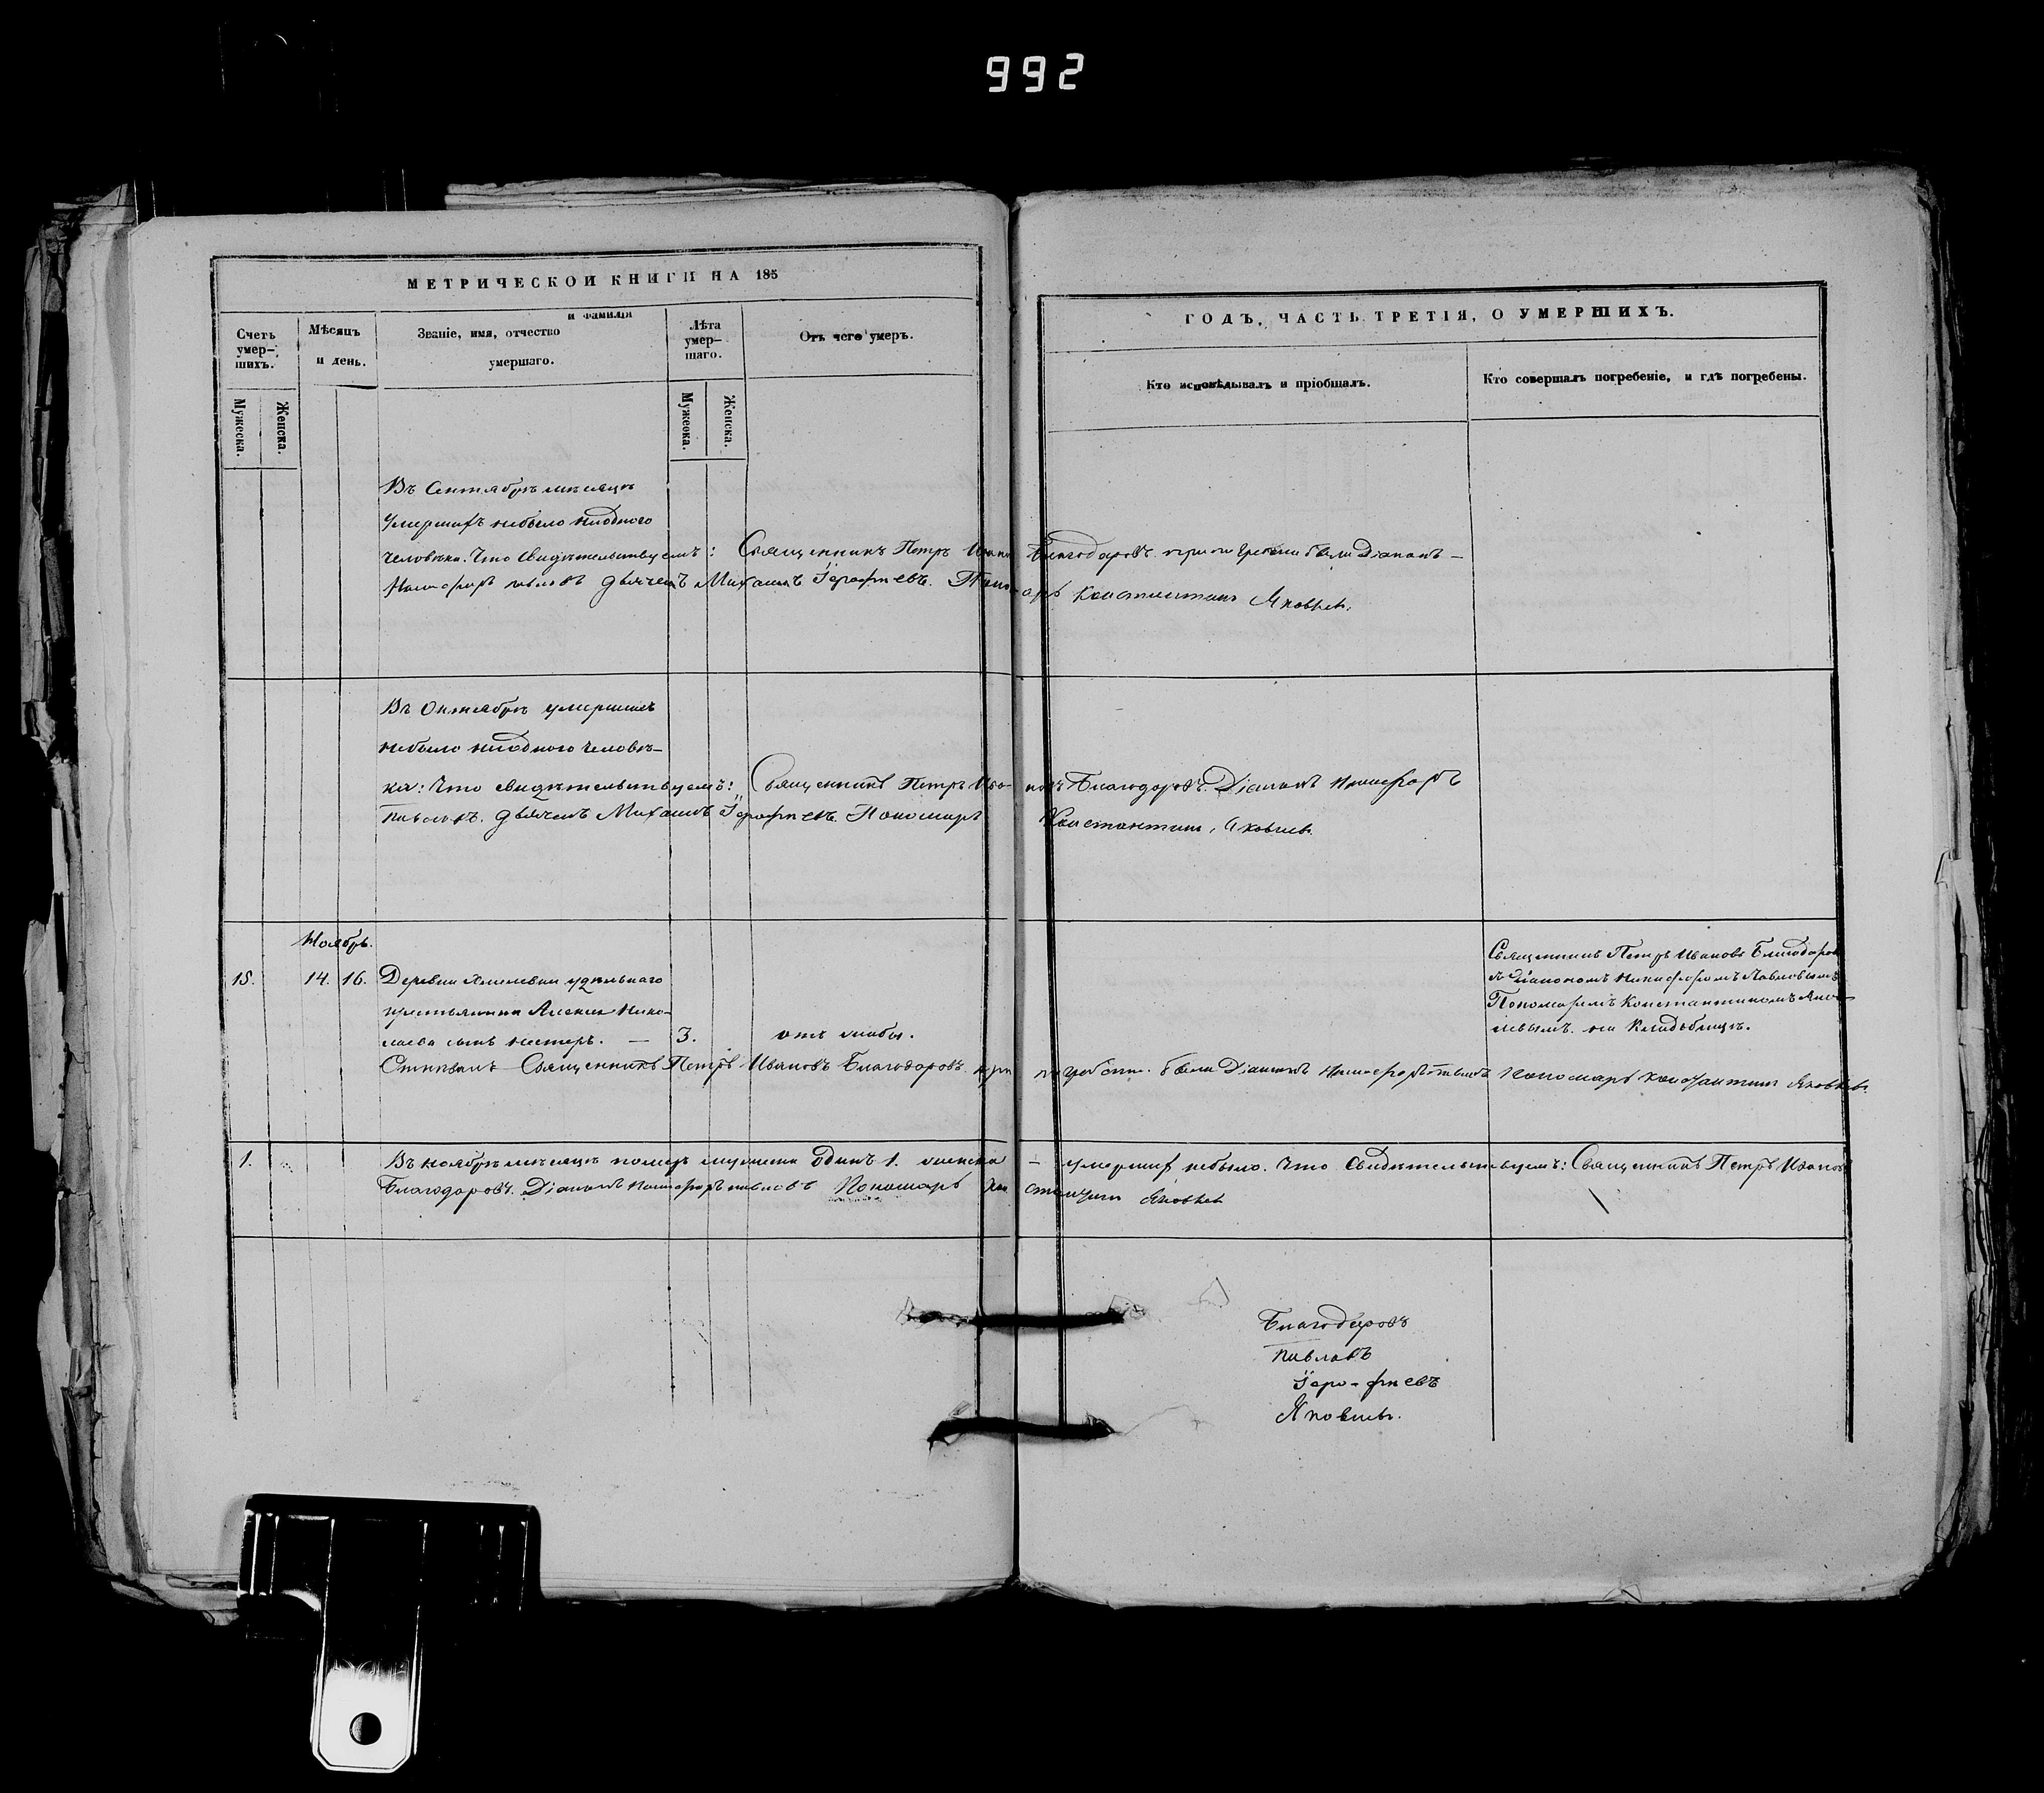 992
МЕТРИЧЕСКОИ КНИГИ НА 185
Счетъ умер-шихъ.
Мѣсяцъ и день.
Званіе, имя, отчество и фамилія умершаго.
Лѣта умер-шаго.
Отъ чего умеръ.
Мужеска.
Женска.
Мужеска.
Женска.
ГОДЪ, ЧАСТЬ ТРЕТІЯ, О УМЕРШИХЪ.
Кто исповѣдывалъ и пріобщалъ.
Кто совершалъ погребеніе, и гдѣ погребены.
Въ Сентябрѣ мѣсяцѣ
умершихъ небыло ниодного
человѣка. Что свидѣтельствуемъ: Священникъ Петръ Иванов Благодаровъ. при были Діаконъ —
Никифоръ павловъ дьячекъ Михаилъ Іерофѣевъ. Пономарь Константинъ Яковлевъ.
Въ Октябрѣ умершихъ
небыло ниодного человѣ-
ка: Что свидѣтельствуемъ: Священникъ Петръ Ивановъ Благодаровъ. Діаконъ Никифоръ
павловъ. дьячекъ Михаилъ Іерофѣевъ. Пономарь Константинъ Яковлевъ.
Ноябрь.
15. 14. 16. Деревни удѣльнаго
крестьянина Алексѣя Нико-
лаева сынъ нестеръ. — 3. отъ оспы.
Священникъ Петръ Ивановъ Благодаров
съ Діакономъ Никифоромъ Павловымъ
Пономаремъ Константиномъ Яков-
левымъ. на Кладбищѣ.
Священникъ Петръ Ивановъ Благодаровъ. при были Діаконъ Никифоръ павловъ Пономарь Константинъ Яковлевъ.
1. Въ ноябрѣ мѣсяцѣ померъ мужеска одинъ 1. женска — умерших небыло. Что свидѣтельствуемъ: Священникъ Петръ Ивановъ
Благодаровъ. Діаконъ Никифоръ павловъ Пономарь Константинъ Яковлев
Благодаровъ
павловъ
Іеро-фѣевъ
Яковлевъ.